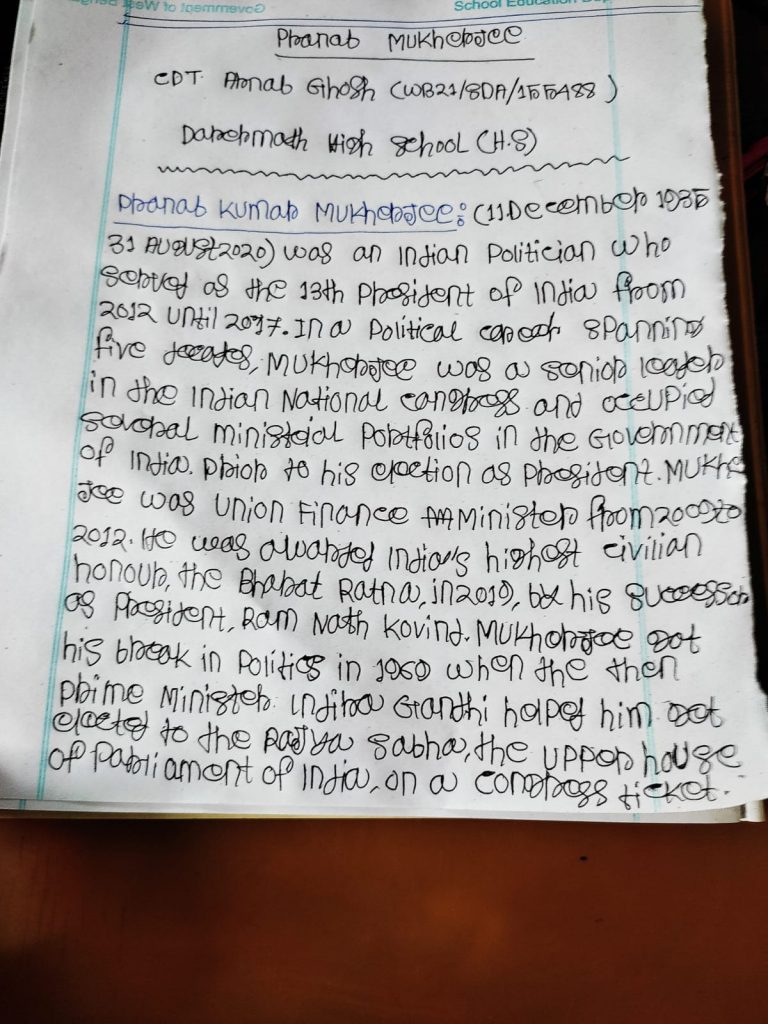 Government of West Bengal
School Education Dep
Pranab Mukherjee
CDT. Arnab Ghosh (WB21/SDA/155488)
Darermath High School (H.S)
Pranab Kumar Mukherjee: (11 December 1935
31 August 2020) was an Indian Politician who
served as the 13th President of India from
2012 until 2017. In a Political career spanning
five decades, Mukherjee was a senior leader
in the Indian National congress and occupied
several ministerial Portfolios in the Government
of India. Prior to his election as President. Mukhe
jee was Union Finance Minister from 2009 to
2012. He was awarded India's highest civilian
honour, the Bharat Ratna, in 2019, by his successor
as President, Ram Nath Kovind. Mukherjee got
his break in Politics in 1969 when the then
Prime Minister Indira Gandhi helped him get
elected to the Rajya Sabha, the upper house
of Parliament of India, on a congress ticket.